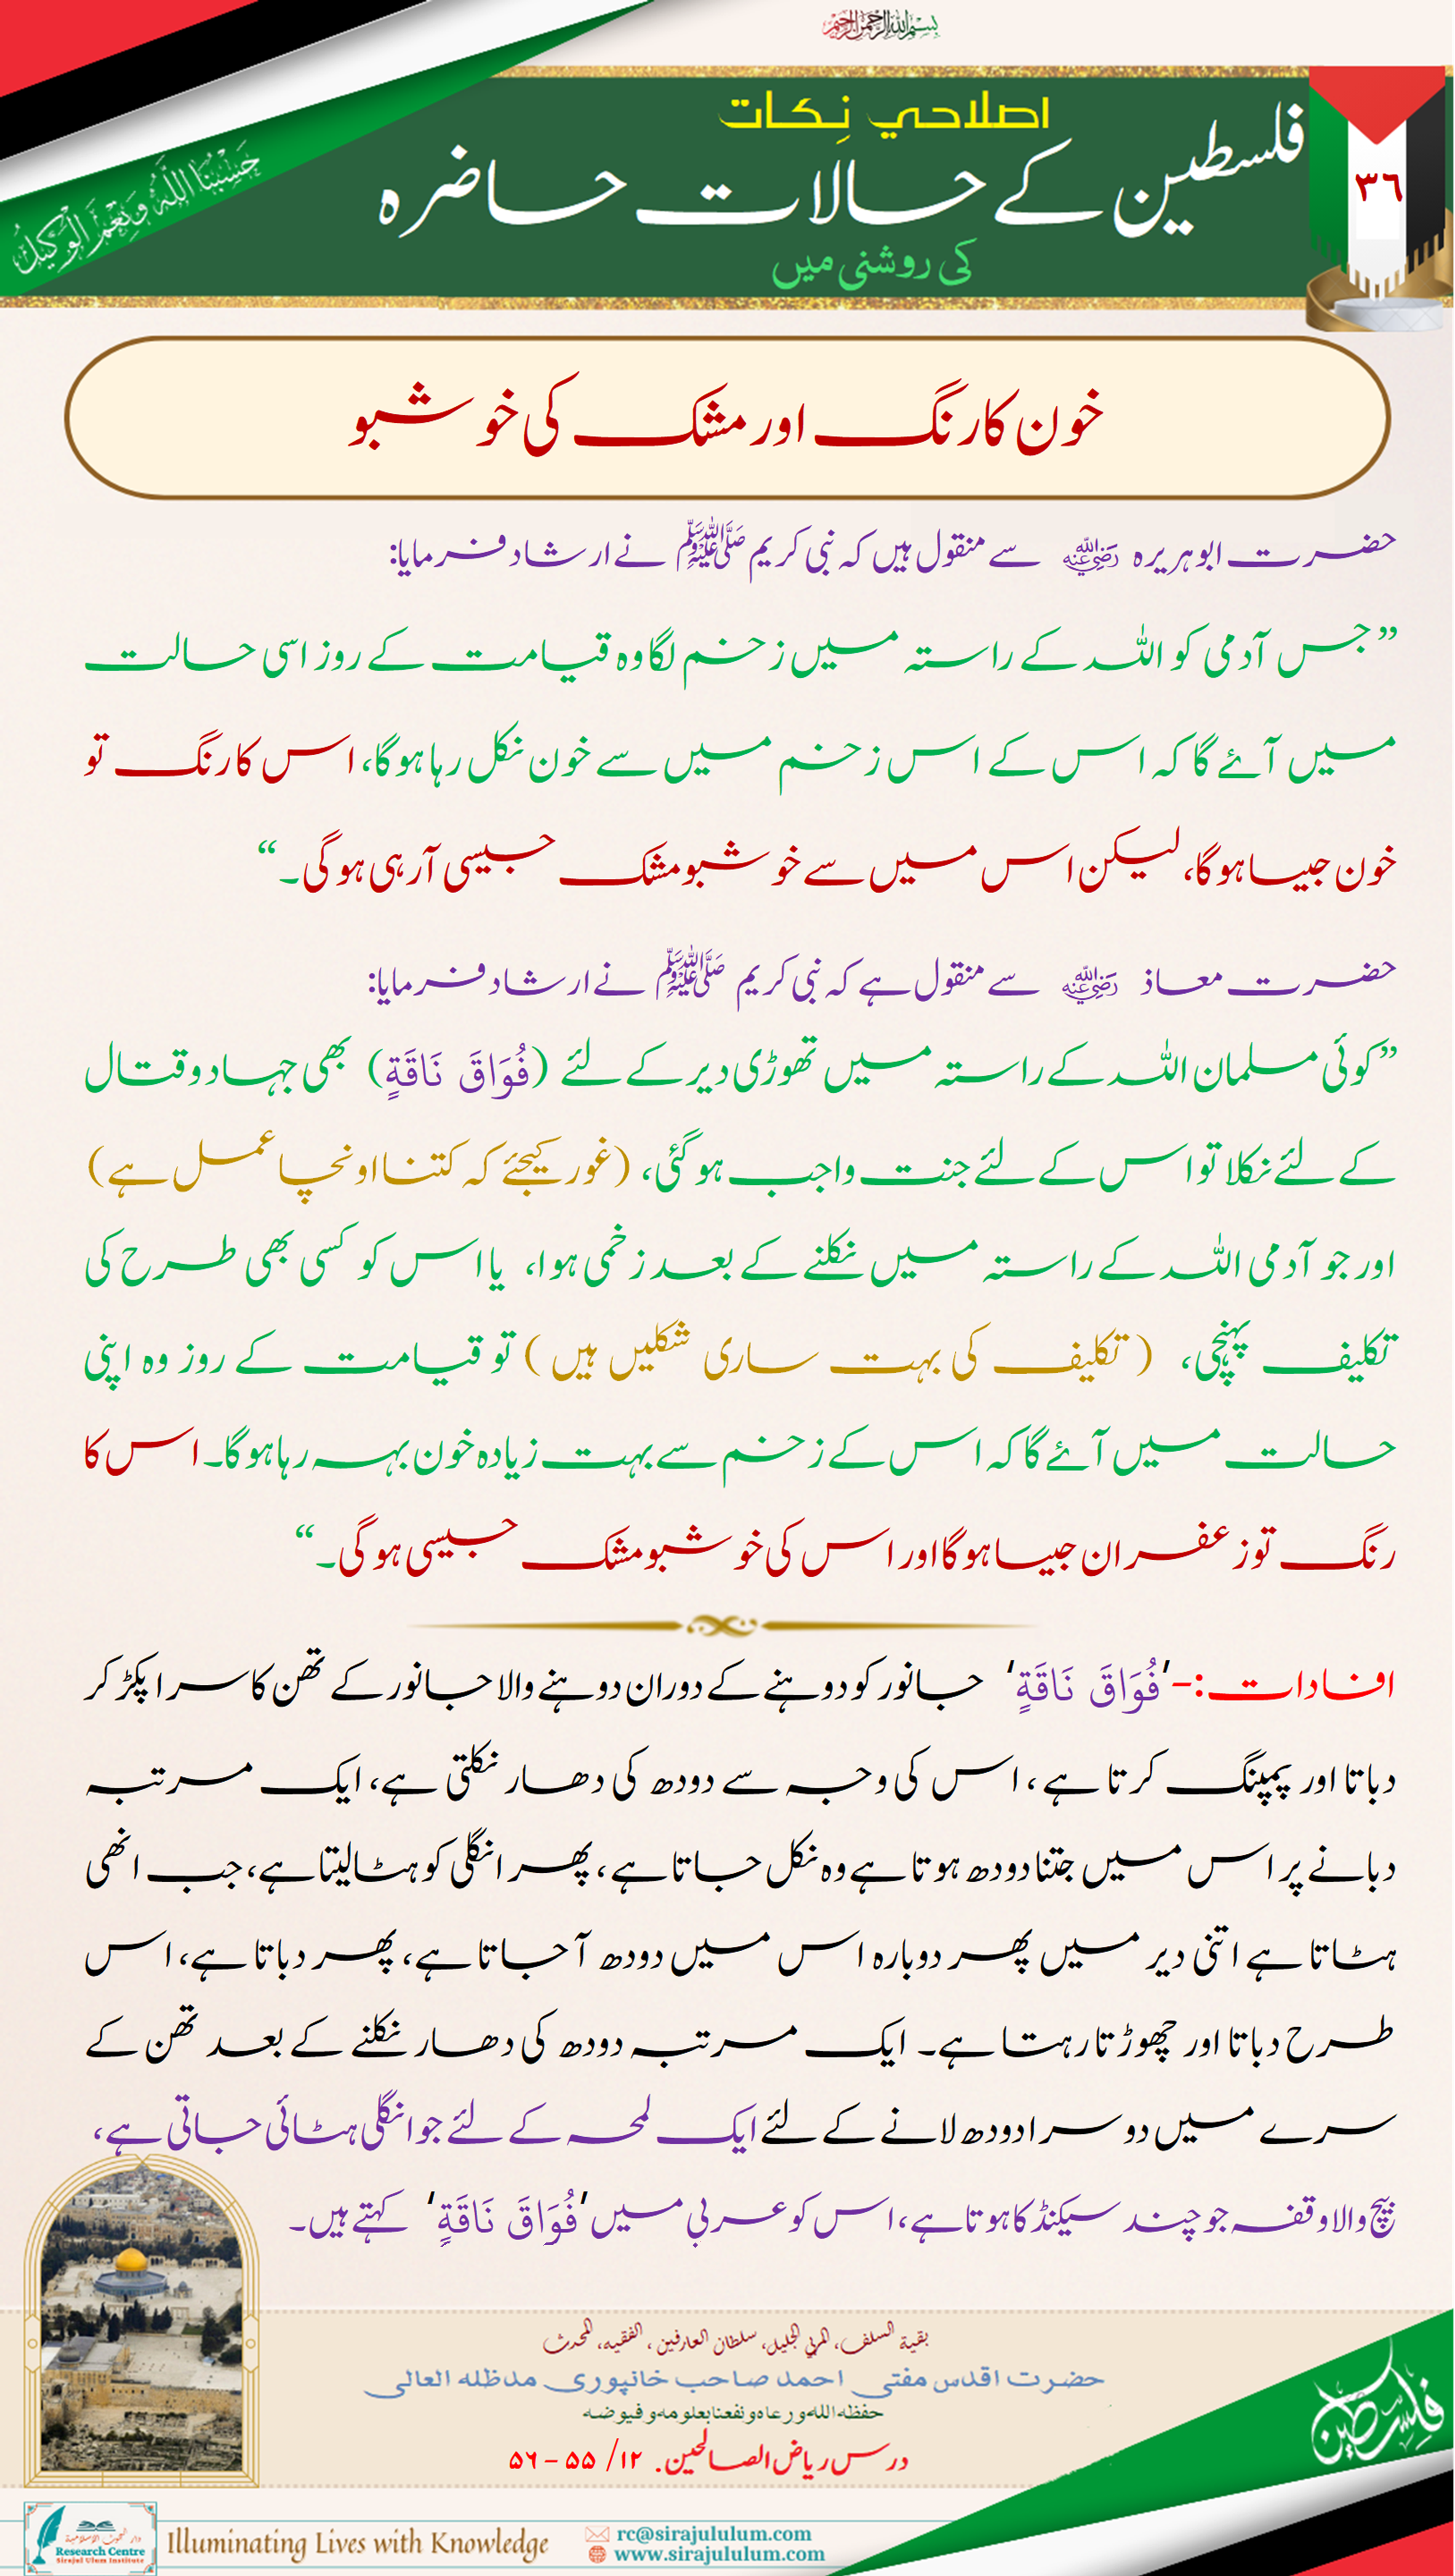 بسم الله الرحمن الرحيم
اصلاحي نِكات
فلسطین کے حالات حاضرہ
کی روشنی میں
٣٦
حَسْبُنَا اللَّهُ وَنِعْمَ الْوَكِيلُ
خون کا رنگ اور مشک کی خوشبو
حضرت ابوہریرہ رضی اللہ عنہ سے منقول ہیں کہ نبی کریم ﷺ نے ارشاد فرمایا:
”جس آدمی کو اللہ کے راستہ میں زخم لگا وہ قیامت کے روز اسی حالت
میں آئے گا کہ اس کے اس زخم میں سے خون نکل رہا ہوگا، اس کا رنگ تو
خون جیسا ہوگا، لیکن اس میں سے خوشبو مشک جیسی آرہی ہوگی۔“
حضرت معاذ رضی اللہ عنہ سے منقول ہے کہ نبی کریم ﷺ نے ارشاد فرمایا:
”کوئی مسلمان اللہ کے راستہ میں تھوڑی دیر کے لئے (فُوَاقَ نَاقَةٍ) بھی جہاد وقتال
کے لئے نکلا تو اس کے لئے جنت واجب ہوگئی، (غور کیجئے کہ کتنا اونچا عمل ہے)
اور جو آدمی اللہ کے راستہ میں نکلنے کے بعد زخمی ہوا، یا اس کو کسی بھی طرح کی
تکلیف پہنچی، (تکلیف کی بہت ساری شکلیں ہیں) تو قیامت کے روز وہ اپنی
حالت میں آئے گا کہ اس کے زخم سے بہت زیادہ خون بہہ رہا ہوگا۔ اس کا
رنگ تو زعفران جیسا ہوگا اور اس کی خوشبو مشک جیسی ہوگی۔“
افادات:-'فُوَاقَ نَاقَةٍ' جانور کو دوہنے کے دوران دوہنے والا جانور کے تھن کا سرا پکڑ کر
دباتا اور پمپنگ کرتا ہے، اس کی وجہ سے دودھ کی دھار نکلتی ہے، ایک مرتبہ
دبانے پر اس میں جتنا دودھ ہوتا ہے وہ نکل جاتا ہے، پھر انگلی کو ہٹا لیتا ہے، جب انھی
ہٹاتا ہے اتنی دیر میں پھر دوبارہ اس میں دودھ آجاتا ہے، پھر دباتا ہے، اس
طرح دباتا اور چھوڑتا رہتا ہے۔ ایک مرتبہ دودھ کی دھار نکلنے کے بعد تھن کے
سرے میں دوسرا دودھ لانے کے لئے ایک لمحہ کے لئے جو انگلی ہٹائی جاتی ہے،
بیچ والا وقفہ جو چند سیکنڈ کا ہوتا ہے، اس کو عربی میں 'فُوَاقَ نَاقَةٍ' کہتے ہیں۔
بقیۃ السلف، المربی الجلیل، سلطان العارفین، الفقیہ، المحدث
حضرت اقدس مفتی احمد صاحب خانپوری مدظلہ العالی
حفظه الله ورعاه ونفعنا بعلومه وفيوضه
درس ریاض الصالحین. ۱۲/ ۵۵ – ۵۶
فلسطين
Research Centre
Sirajul Ulum Institute
Illuminating Lives with Knowledge
rc@sirajululum.com
www.sirajululum.com